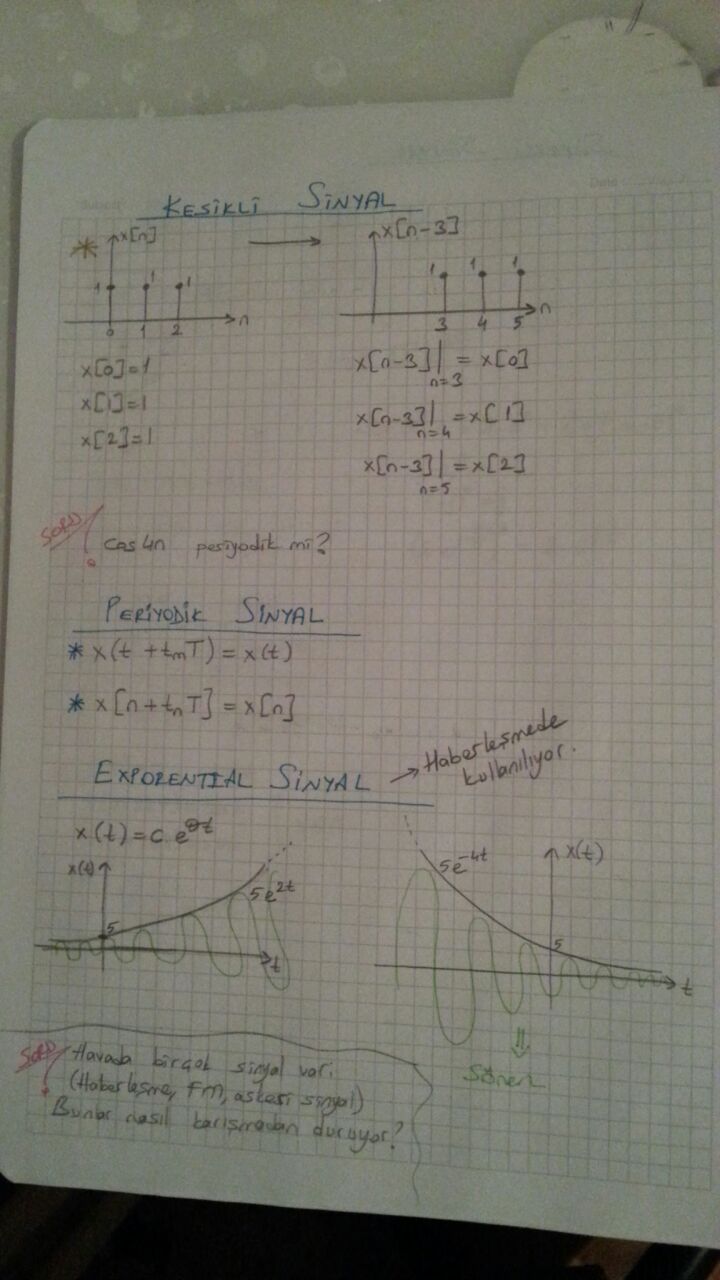 KESİKLİ SİNYAL
* x[n] → x[n-3]
1 1 1 n
0 1 2
1 1 1 n
3 4 5
x[0]=1
x[1]=1
x[2]=1
x[n-3]|n=3 = x[0]
x[n-3]|n=4 = x[1]
x[n-3]|n=5 = x[2]
SORU
cos4n periyodik mi?
PERİYODİK SİNYAL
* x(t + tmT) = x(t)
* x[n + tnT] = x[n]
EXPORENTIAL SİNYAL → Haberleşmede
kullanılıyor.
x(t) = c e^at
x(t) 5 5e^2t t
5e^-4t x(t) 5 t
⇓
Sönen
SORU Havada birçok sinyal var.
(Haberleşme, FM, askeri sinyal)
Bunlar nasıl karışmadan duruyor?